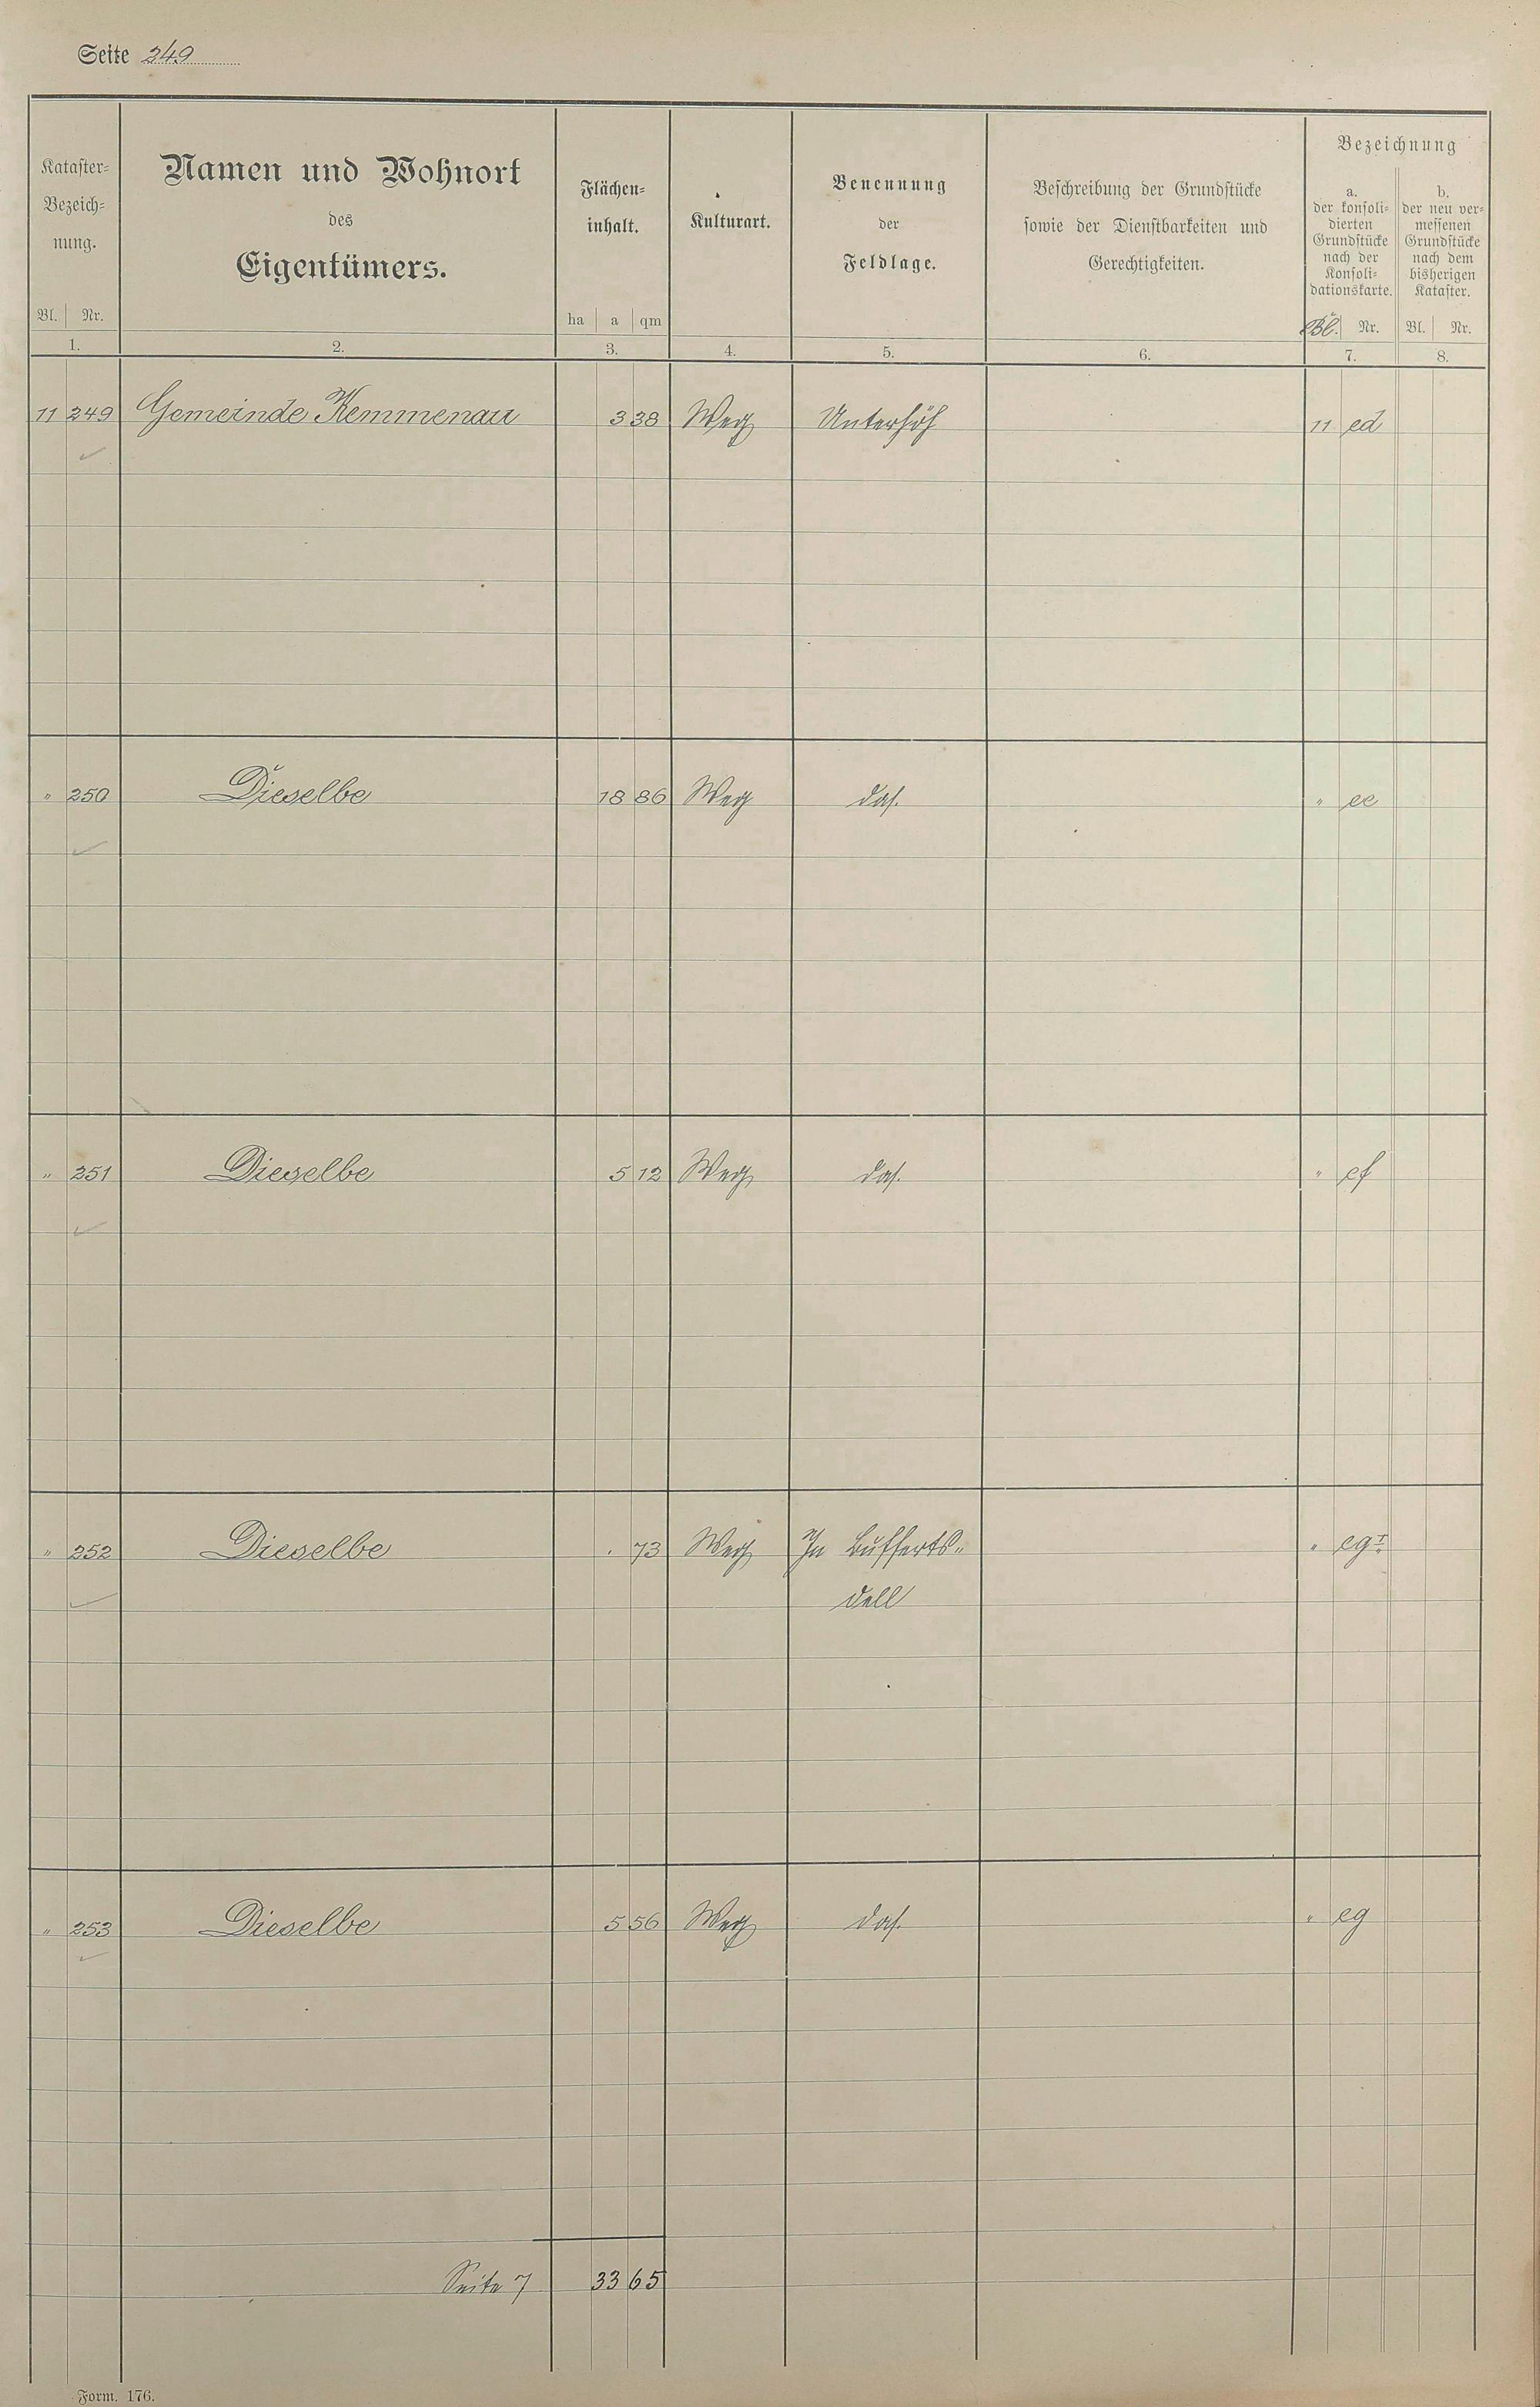 Seite 249
Kataster-
Bezeich-
nung.
Bl. Nr.
1.
Namen und Wohnort
des
Eigentümers.
2.
Flächen-
inhalt.
ha a qm
3.
Kulturart.
4.
Benennung
der
Feldlage.
5.
Beschreibung der Grundstücke
sowie der Dienstbarkeiten und
Gerechtigkeiten.
6.
Bezeichnung
a.
der konsoli-
dierten
Grundstücke
nach der
Konsoli-
dationskarte.
Bl. Nr.
7.
b.
der neu ver-
messenen
Grundstücke
nach dem
bisherigen
Kataster.
Bl. Nr.
8.
11 249 Gemeinde Kemmenau 3 38 Weg Unterhöf 11 ed
" 250 Dieselbe 18 86 Weg das. " ee
" 251 Dieselbe 5 12 Weg das. " ef
" 252 Dieselbe . 73 Weg In Bufferts-
dell
" egI
" 253 Dieselbe 5 56 Weg das. " eg
Seite 7 33 65
Form. 176.